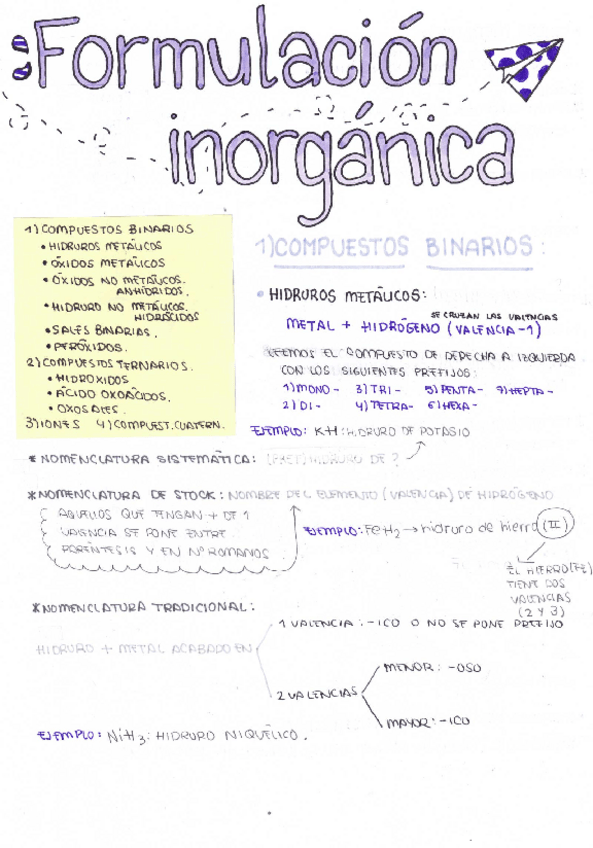 Formulación
inorgánica
1) COMPUESTOS BINARIOS
• HIDRUROS METÁLICOS
• ÓXIDOS METÁLICOS
• ÓXIDOS NO METÁLICOS.
ANHÍDRIDOS.
• HIDRURO NO METÁLICOS.
HIDRÁCIDOS
• SALES BINARIAS.
• PERÓXIDOS.
2) COMPUESTOS TERNARIOS.
• HIDRÓXIDOS
• ÁCIDO OXOÁCIDOS.
• OXOSALES.
3) IONES 4) COMPUEST. CUATERN.
1) COMPUESTOS BINARIOS:
• HIDRUROS METÁLICOS:
SE CRUZAN LAS VALENCIAS
METAL + HIDRÓGENO (VALENCIA -1)
LEEMOS EL COMPUESTO DE DERECHA A IZQUIERDA
CON LOS SIGUIENTES PREFIJOS:
1) MONO- 3) TRI- 5) PENTA- 7) HEPTA-
2) DI- 4) TETRA- 6) HEXA-
EJEMPLO: KH: HIDRURO DE POTASIO
* NOMENCLATURA SISTEMÁTICA: (PREF) HIDRURO DE ?
* NOMENCLATURA DE STOCK: NOMBRE DEL ELEMENTO (VALENCIA) DE HIDRÓGENO
AQUELLOS QUE TENGAN + DE 1
VALENCIA SE PONE ENTRE
PARÉNTESIS Y EN Nº ROMANOS
EJEMPLO: FeH2 → hidruro de hierro (II)
EL HIERRO (FE)
TIENE DOS
VALENCIAS
(2 Y 3)
* NOMENCLATURA TRADICIONAL:
HIDRURO + METAL ACABADO EN
1 VALENCIA: -ICO O NO SE PONE PREFIJO
2 VALENCIAS
MENOR: -OSO
MAYOR: -ICO
EJEMPLO: NiH3: HIDRURO NIQUÉLICO.